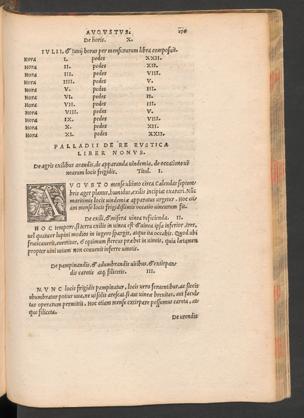 AVGVSTVS.
De horis. X.
IVLII, & Junij horas per mensurarum libra composuit.
Hora I. pedes XXII.
Hora II. pedes XII.
Hora III. pedes VIII.
Hora IIII. pedes V.
Hora V. pedes III.
Hora VI. pedes II.
Hora VII. pedes III.
Hora VIII. pedes V.
Hora IX. pedes VIII.
Hora X. pedes XII.
Hora XI. pedes XXII.
PALLADII DE RE RVSTICA
LIBER NONVS.
De agris exilibus arandis, de apparanda uindemia, de occatione ui
nearum locis frigidis. Titul. I.
AVGVSTO mense ultimo circa Calendas septem-
bris ager planus, humidus, exilis incipiat exarari. Nũc
maritimis locis uindemiæ apparatus urgetur. Hoc eti
am mense locis frigidissimis occatio uinearum fit.
De exili, & misera uinea reficienda. II.
HOC tempore, si terra exilis in uinea est & uinea ipsa inferior ,
uel quatuor lupini modios in iugero spargis, atque ita occabis. Quod ubi
fruticauerit, euertitur, & optimum stercus præbet in uineis, quia lætamen
propter uini uitium non conuenit inferre uineis.
De pampinandis, & adumbrandis uitibus, & extirpan-
dis carectis atq; filicetis. III.
NVNC locis frigidis pampinatur, locis uero feruentibus, ac siccis
obumbratur potius uua, ne ui solis arescat si aut uineæ breuitas, aut facul-
tas operarum permittit. Hoc etiam mense extirpare possumus carecta, at-
que filiceta.
De urendis